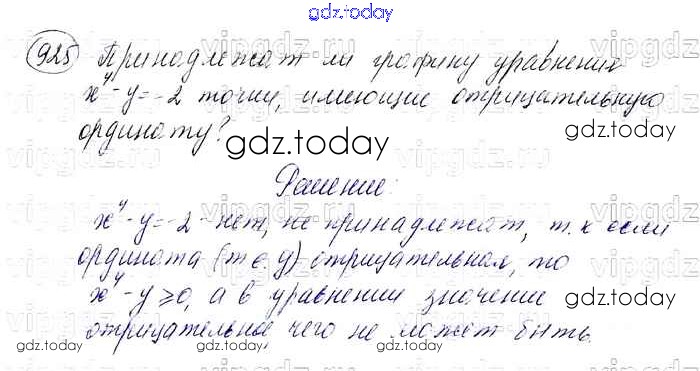 gdz.today
925 Принадлежат ли графику уравнения
x⁴-y=-2 точки, имеющие отрицательную
ординату?
gdz.today
gdz.today
Решение:
x⁴-y=-2 - нет, не принадлежат, т.к если
ордината (т.е. y) отрицательная, то
x⁴-y≥0, а в уравнении значение
отрицательное, чего не может быть.
gdz.today
gdz.today